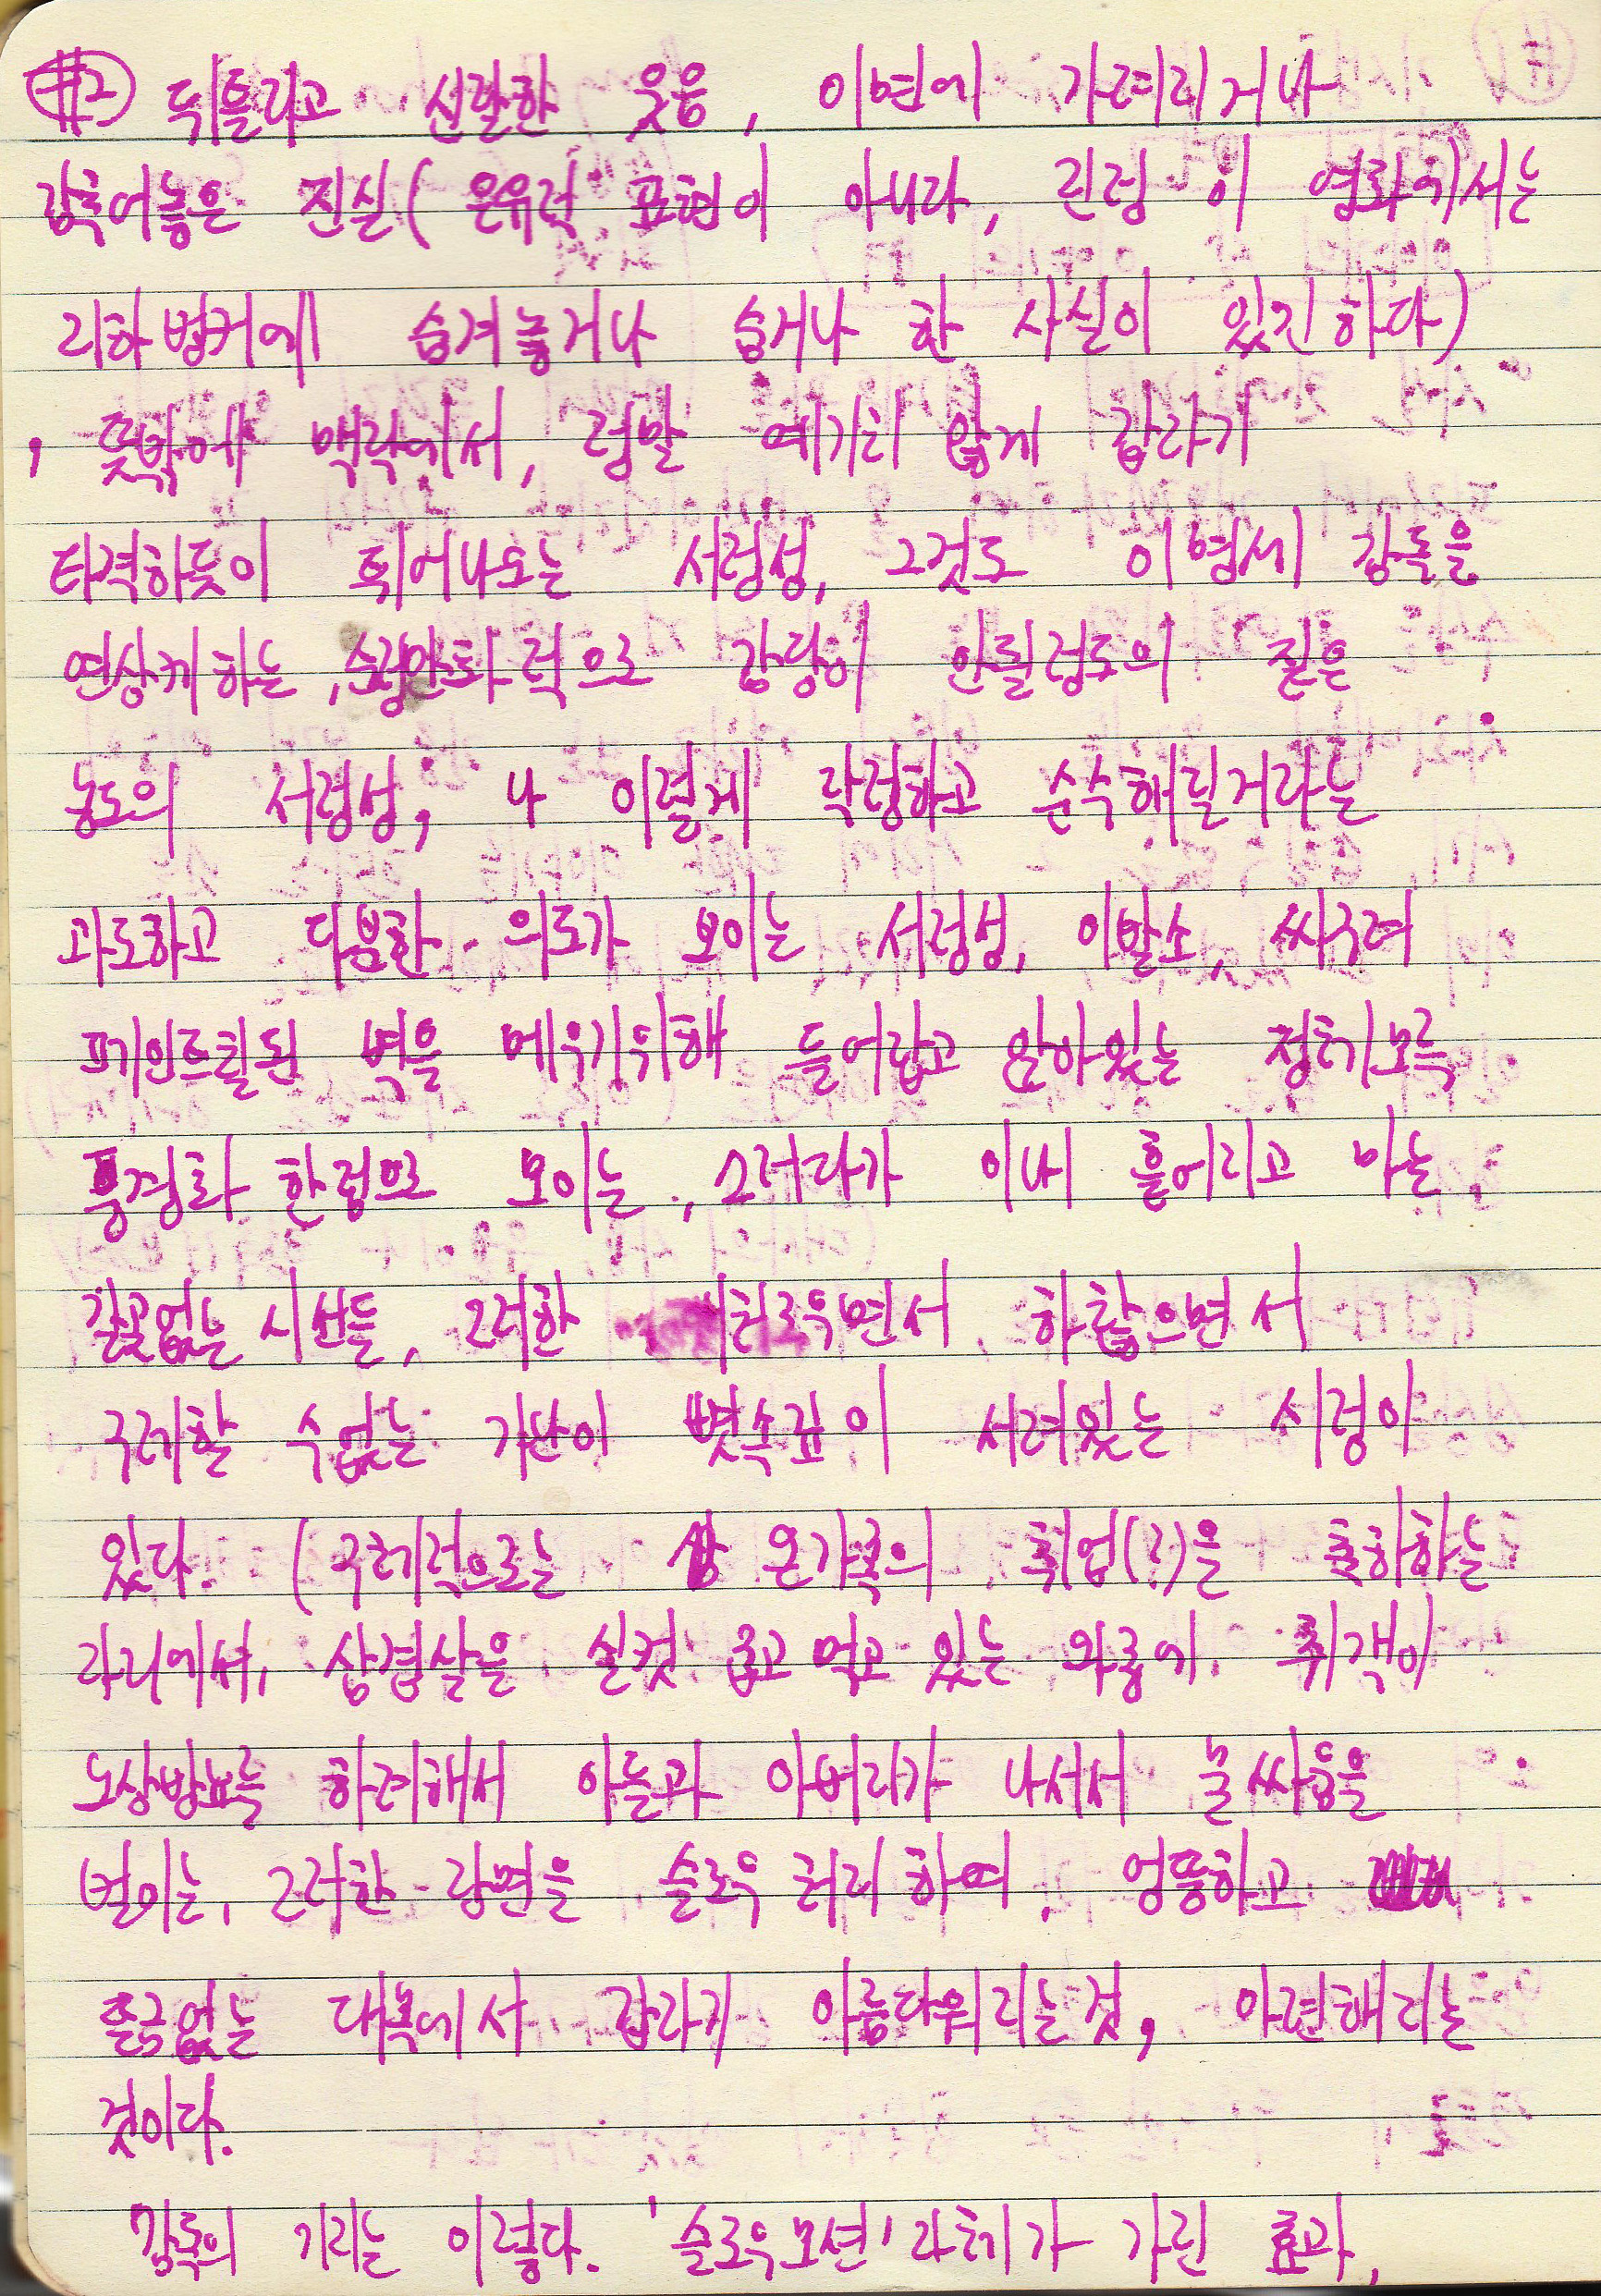 #2 뒤틀리고 신랄한 웃음, 이면에 가려지거나
감추어놓은 진실(은유적 표현이 아니라, 진정 이 영화에서는
지하벙커에 숨겨놓거나 숨거나 한 사실이 있긴하다)
, 뜻밖에 맥락에서, 정말 예기치 않게 갑자기
타격하듯이 튀어나오는 서정성, 그것도 이명세 감독을
연상케하는, 순정만화적으로 감당이 안될정도의 짙은
농도의 서정성, 나 이렇게 락정하고 순수해질거라는
과도하고 다분한 의도가 보이는 서정성, 이발소, 싸구려
페인트칠된 벽을 메우기위해 들어랍고 앉아있는 정체모를
풍경화 한점으로 보이는, 그러다가 이내 흩어지고 마는,
길곳없는 시선들, 그러한 처로우면서, 하찮으면서
구제할 수없는 가난이 뼛속깊이 서려있는 서정이
있다. (구체적으로는 온가족의 취업(?)을 축하하는
자리에서, 삼겹살을 실컷 굽고 먹고 있는 와중에, 취객이
노상방뇨를 하려해서 아들과 아버지가 나서서 물싸움을
벌이는, 그러한 장면을 슬로우 처리하여, 엉뚱하고
뜬금없는 대목에서 갑자기 아름다워지는것, 아련해지는
것이다.
감독의 기지는 이렇다. '슬로우모션' 자체가 가진 효과,